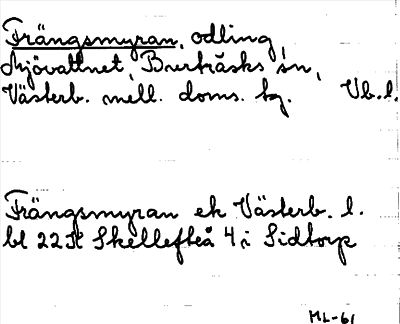 Frängsmyran, odling,
Mjövattnet, Burträsks sn,
Västerb. mell. doms. bg. Vb.l.
Frängsmyran ek Västerb. l.
bl 22 K Skellefteå 4 i Sidtorp
ML-61